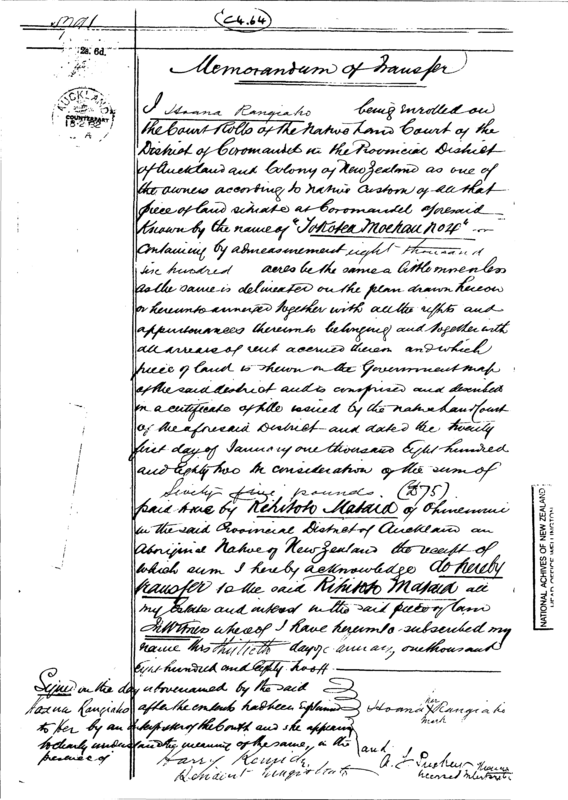 (C4.64)
2s. 6d.
AUCKLAND
COUNTERPART
15 2 82
A
Memorandum of Transfer
I Hoana Rangiaho being enrolled on
the Court Rolls of the Native Land Court of the
District of Coromandel in the Provincial District
of Auckland and Colony of New Zealand as one of
the owners according to native custom of all that
piece of land situate at Coromandel aforesaid
Known by the name of "Tokatea Moehau No 4"
containing by admeasurement eight thousand
six hundred acres be the same a little more or less
as the same is delineated on the plan drawn hereon
or hereunto annexed together with all the rights and
appurtenances thereunto belonging and together with
all arrears of rent accrued therein and which
piece of land is shewn on the Government map
of the said district and is comprised and described
in a certificate of title issued by the native land Court
of the aforesaid District and dated the twenty
first day of January one thousand Eight hundred
and Eighty two In consideration of the sum of
Seventy five pounds. (£75)
paid to me by Rihitoto Mataia of Ohinemuri
in the said Provincial District of Auckland an
Aboriginal Native of New Zealand the receipt of
which sum I hereby acknowledge do hereby
transfer to the said Rihitoto Mataia all
my Estate and interest in the said piece of land
In Witness whereof I have hereunto subscribed my
name this thirtieth day of January, one thousand
Eight hundred and Eighty two
Signed on the day abovenamed by the said
Hoana Rangiaho after the contents had been Explained
to her by an Interpreter of the Court and she appearing
to clearly understand the meaning of the same, in the
presence of
Hoana X Rangiaho
her
mark
Harry Kenrick
Resident Magistrate
and
A. J.
licensed Interpreter
NATIONAL ACHIVES OF NEW ZEALAND
HEAD OFFICE WELLINGTON